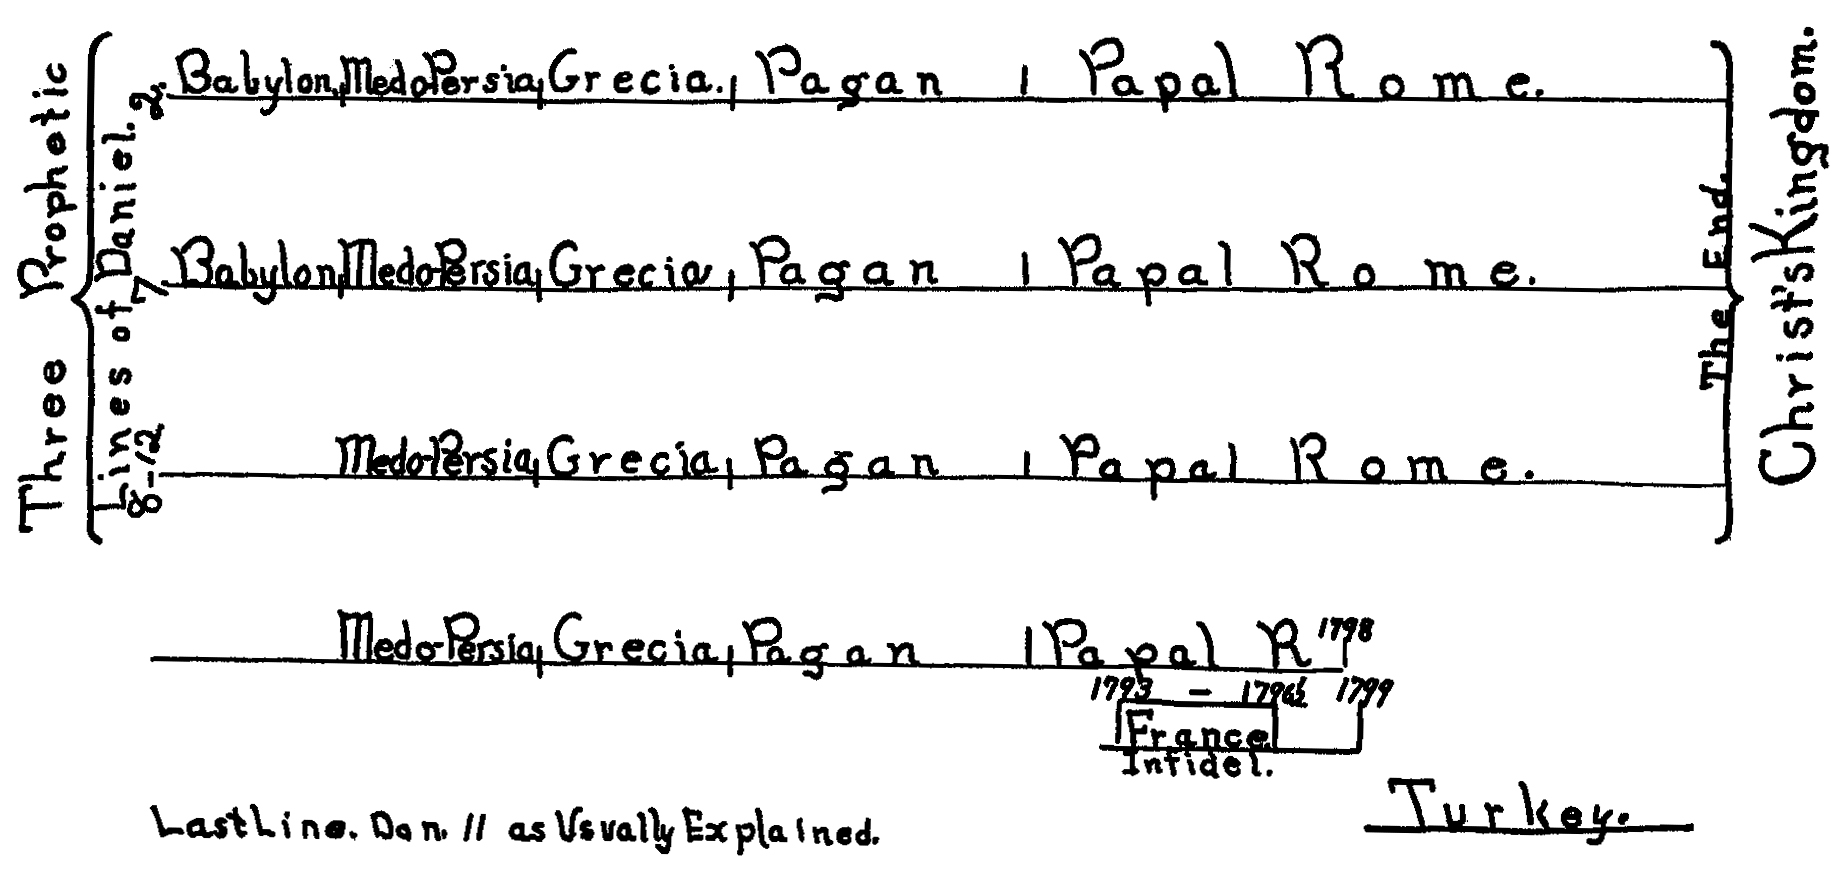 Three Prophetic
Lines of Daniel.
2. Babylon, Medo Persia, Grecia. Pagan | Papal Rome.
7. Babylon, Medo-Persia, Grecia Pagan | Papal Rome.
8-12 Medo-Persia, Grecia, Pagan | Papal Rome.
The End.
Christ's Kingdom.
Medo-Persia, Grecia, Pagan | Papal R 1798
1793 - 1796½ 1799
France.
Infidel.
Turkey.
Last Line. Dan. 11 as Usually Explained.